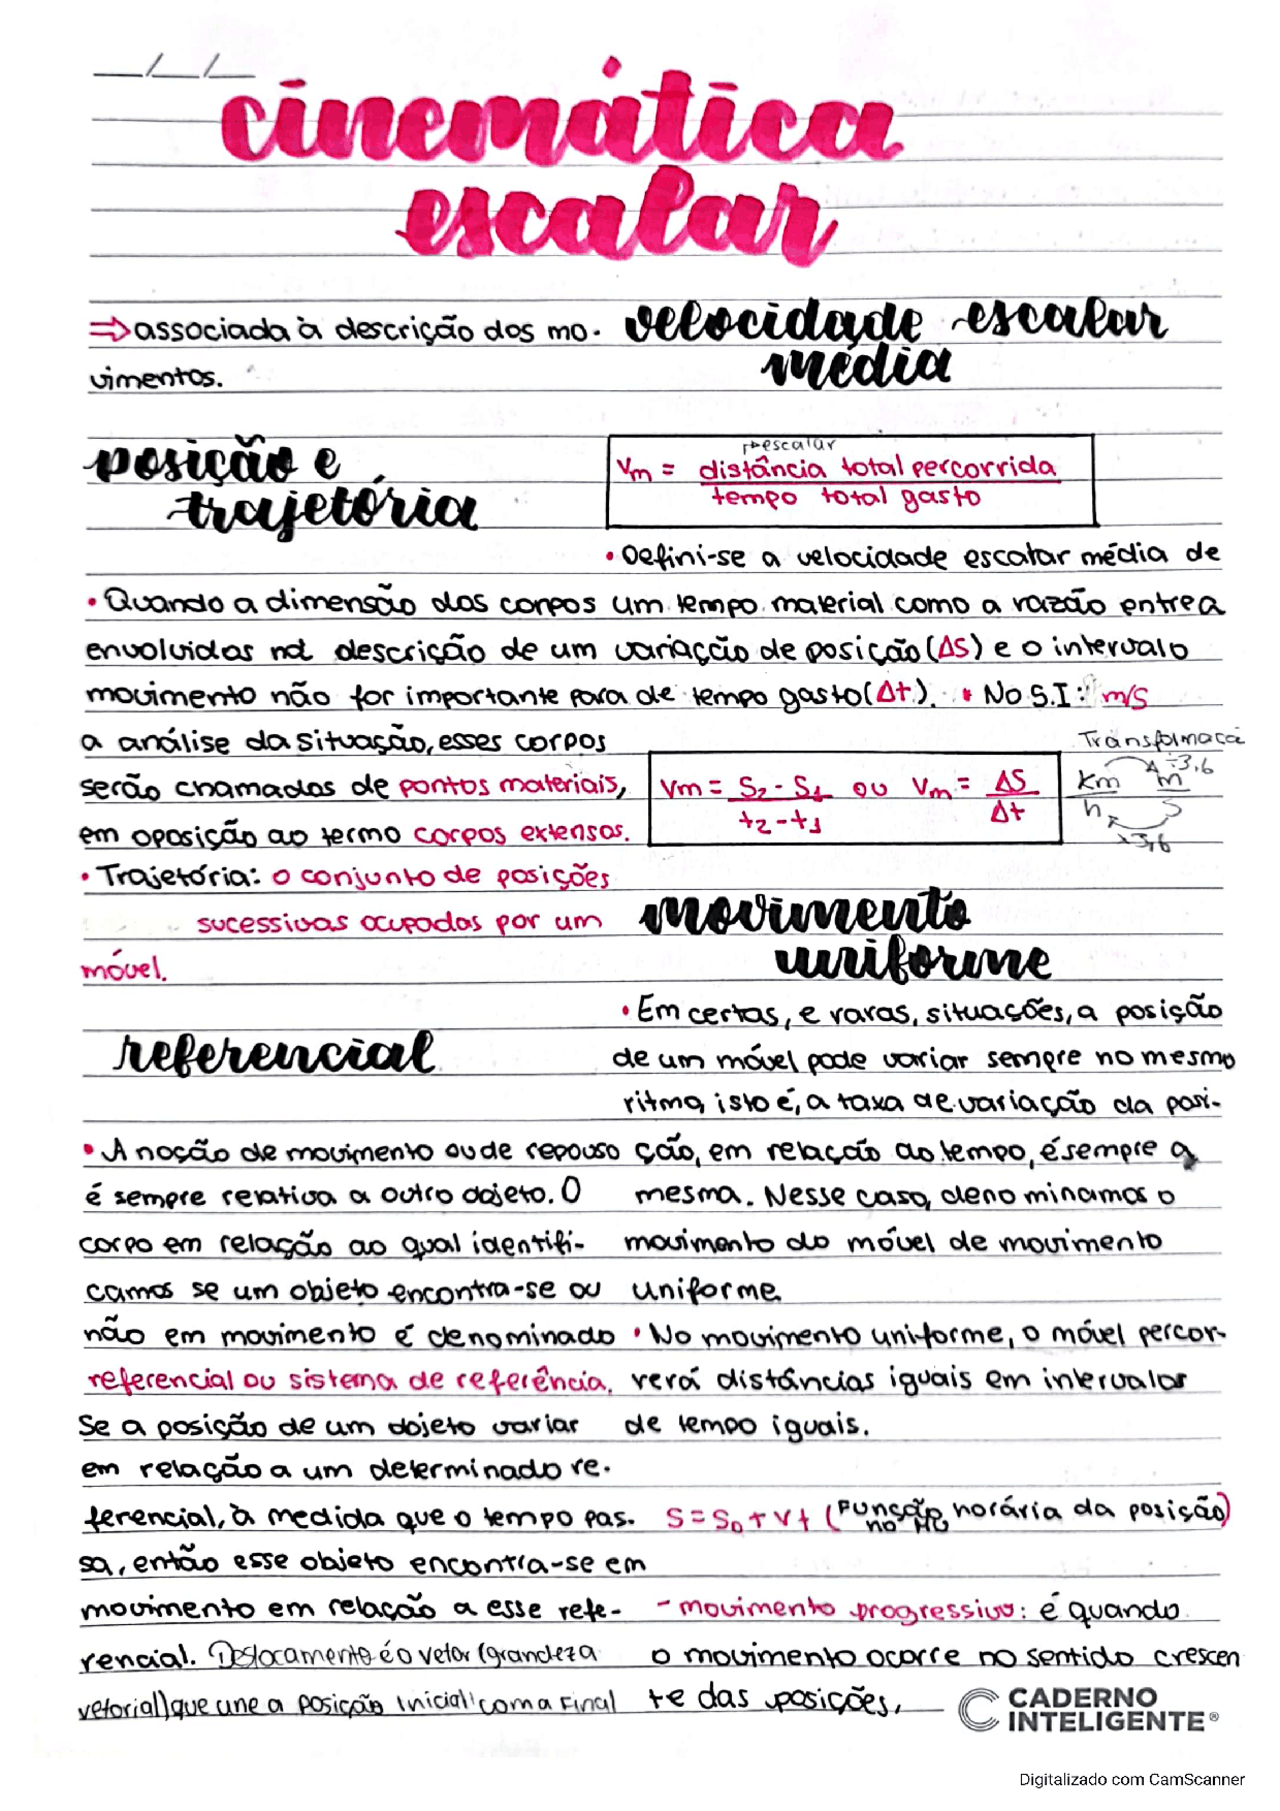 __/__/__
cinemática
escalar
⇒ associada à descrição dos mo-
vimentos.
posição e
trajetória
• Quando a dimensão dos corpos
envolvidos na descrição de um
movimento não for importante para
a análise da situação, esses corpos
serão chamados de pontos materiais,
em oposição ao termo corpos extensos.
• Trajetória: o conjunto de posições
sucessivas ocupadas por um
móvel.
referencial
• A noção de movimento ou de repouso
é sempre relativa a outro objeto. O
corpo em relação ao qual identifi-
camos se um objeto encontra-se ou
não em movimento é denominado
referencial ou sistema de referência.
Se a posição de um objeto variar
em relação a um determinado re-
ferencial, à medida que o tempo pas-
sa, então esse objeto encontra-se em
movimento em relação a esse refe-
rencial. Deslocamento é o vetor (grandeza
vetorial) que une a posição inicial com a final
velocidade escalar
média
↱escalar
Vm = distância total percorrida
tempo total gasto
• Defini-se a velocidade escalar média de
um tempo material como a razão entre a
variação de posição (ΔS) e o intervalo
de tempo gasto (Δt). • No S.I: m/s
Transformaçã
Vm = S2 - S1 ou Vm = ΔS
t2 - t1 Δt
÷3,6
km m
h s
x3,6
movimento
uniforme
• Em certas, e raras, situações, a posição
de um móvel pode variar sempre no mesmo
ritmo, isto é, a taxa de variação da posi-
ção, em relação ao tempo, é sempre a
mesma. Nesse caso, denominamos o
movimento do móvel de movimento
uniforme.
• No movimento uniforme, o móvel percor-
rerá distâncias iguais em intervalos
de tempo iguais.
S = S0 + Vt (Função horária da posição)
no MU
- movimento progressivo: é quando
o movimento ocorre no sentido crescen
te das posições.
CADERNO
INTELIGENTE®
Digitalizado com CamScanner